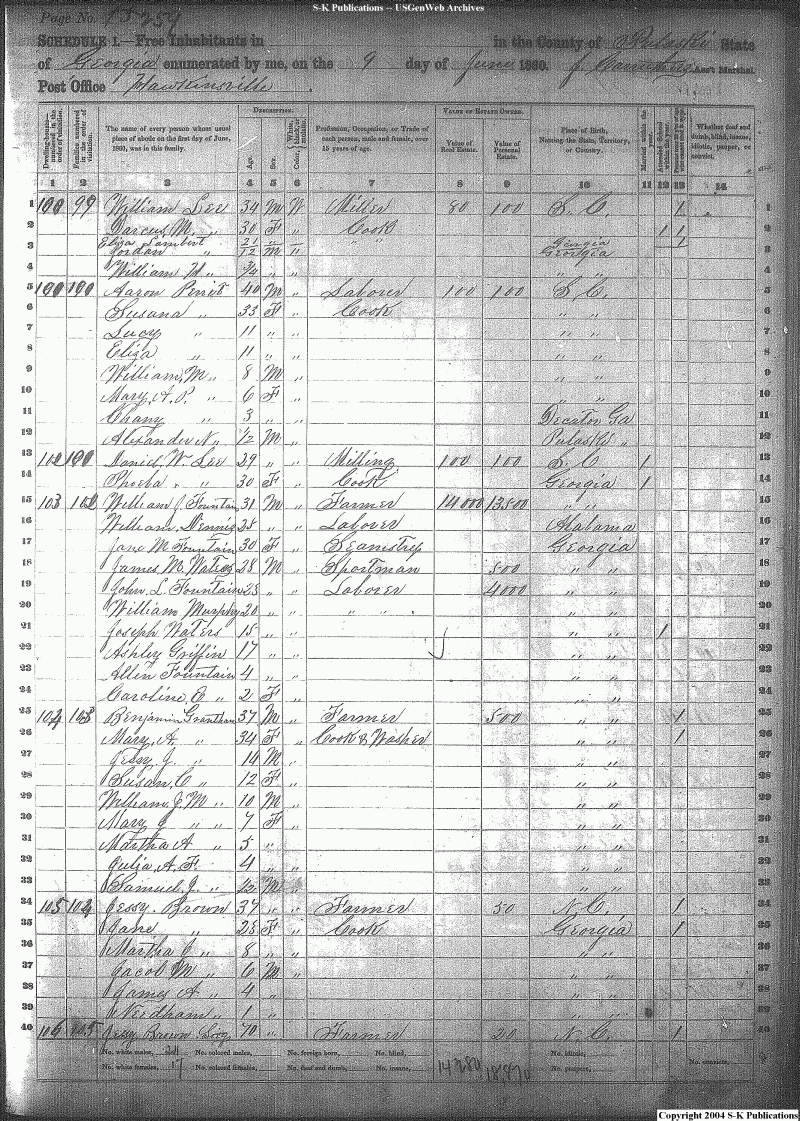 S-K Publications -- USGenWeb Archives
Page No. 259
SCHEDULE 1.—Free Inhabitants in in the County of Pulaski State
of Georgia enumerated by me, on the 9 day of June 1860. Ass't Marshal.
Post Office Hawkinsville
DESCRIPTION. VALUE OF ESTATE OWNED.
Dwelling-houses— numbered in the order of visitation. Families numbered in the order of visitation. The name of every person whose usual place of abode on the first day of June, 1860, was in this family. Age. Sex. Color, White, black, or mulatto. Profession, Occupation, or Trade of each person, male and female, over 15 years of age. Value of Real Estate. Value of Personal Estate. Place of Birth, Naming the State, Territory, or Country. Married within the year. Attended School within the year. Whether deaf and dumb, blind, insane, idiotic, pauper, or convict.
1 2 3 4 5 6 7 8 9 10 11 12 13 14
1 99 William Lee 34 M W Miller 80 100 S. C. 1 1
2 Darcus M. " 30 F " Cook " " 1 1 2
3 Eliza Lambert 21 " " Georgia 1
Jordan " 12 M " Georgia 3
4 William H " 3/4 " " " " 4
5 100 Aaron Perrit 40 M " Laborer 100 100 S. C. 5
6 Susana " 33 F " Cook " " 6
7 Lucy " 11 " " " " 7
8 Eliza " 11 " " " " 8
9 William, M " 8 M " " " 9
10 Mary, A. P. " 6 F " " " 10
11 Chany " 3 " " Decator Ga 11
12 Alexander N " 1/2 M " Pulaski " 12
13 Daniel W Lee 29 " " Milling 100 100 S. C 1 13
14 Phoeba " " 30 F " Cook Georgia 1 14
15 103 William J Fountain 31 M " Farmer 14000 13,500 " " 15
16 William, Dennis 28 " " Laborer Alabama 16
17 Jane M Fountain 30 F " Seamstress Georgia 17
18 James, M. Waters 28 M " Sportman 500 " " 18
19 John L. Fountain 23 " " Laborer 4000 " " 19
20 William Murphy 20 " " " " " " 20
21 Joseph Waters 15 " " " " 1 21
22 Ashley Griffin 17 " " " " 22
23 Allen Fountain 4 " " " " 23
24 Caroline, E " 2 F " " " 24
25 104 103 Benjamin Grantham 37 M " Farmer 500 " " 1 25
26 Mary, A. " 34 F " Cook & Washer " " 1 26
27 Jessy J. " 14 M " " " 27
28 Susan, C " 12 F " " " 28
29 William, J, M " 10 M " " " 29
30 Mary " " 7 F " " " 30
31 Martha A " 5 " " " " 31
32 Julia, A. F. 4 " " " " 32
33 Samuel, J. " M " " " 33
34 105 104 Jessy Brown 37 " " Farmer 50 N. C. 1 34
35 Jane " 28 F " Cook Georgia 1 35
36 Martha J " 8 " " " " 36
37 Jacob M " 6 M " " " 37
38 James A " 4 " " " " 38
39 Needham " 1 " " " " 39
40 106 105 Jessy Brown 70 " " Farmer 20 N. C. 1 40
No. white males, No. colored males, No. foreign born, No. blind, No. idiotic, No. convicts,
No. white females, 17 No. colored females, No. deaf and dumb, No. insane, 14280 No. paupers,
Copyright 2004 S-K Publications